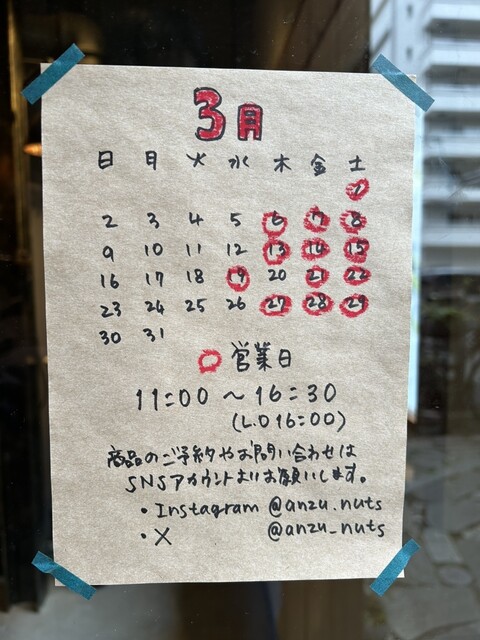 3月
日 月 火 水 木 金 土
1
2 3 4 5 6 7 8
9 10 11 12 13 14 15
16 17 18 19 20 21 22
23 24 25 26 27 28 29
30 31
営業日
11:00 ～ 16:30
(L.O 16:00)
商品のご予約やお問い合わせは
SNSアカウントよりお願いします。
・Instagram @anzu.nuts
・X @anzu_nuts